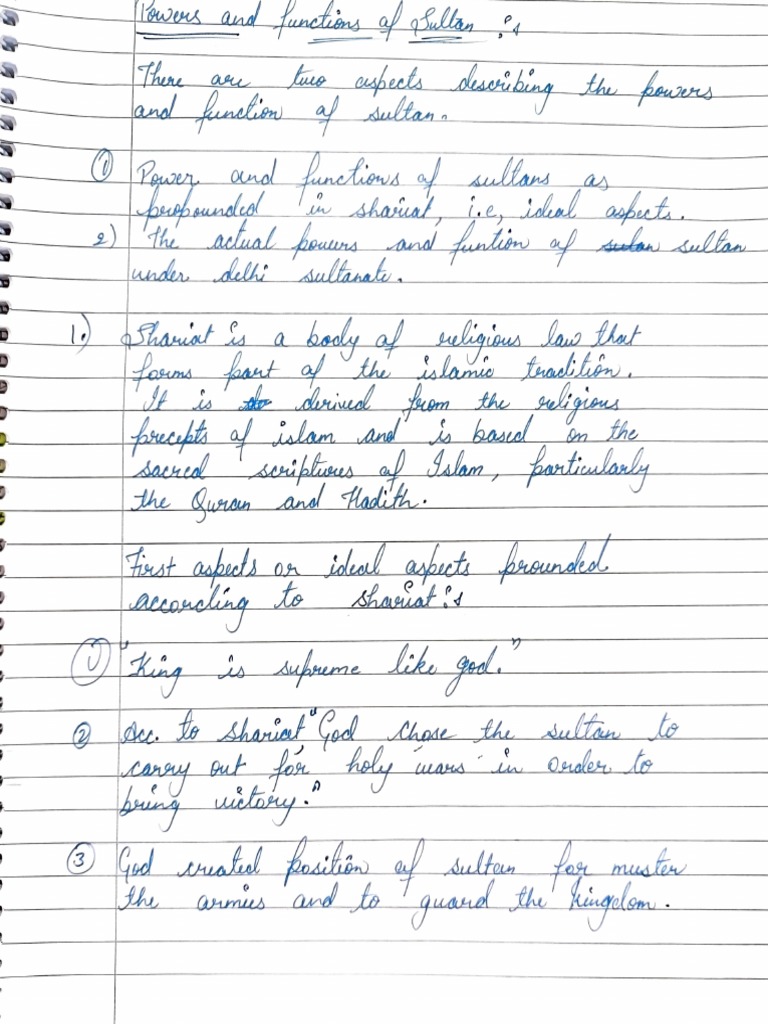 Powers and functions of Sultan :-
There are two aspects describing the powers
and function of sultan.
① Power and functions of sultans as
propounded in shariat, i.e, ideal aspects.
2) The actual powers and funtion of sultan
under delhi sultanate.
1.) Shariat is a body of religious law that
forms part of the islamic tradition.
It is derived from the religious
precepts of islam and is based on the
sacred scriptures of Islam, particularly
the Quran and Hadith.
First aspects or ideal aspects prounded
according to shariat :-
① "King is supreme like god."
② Acc. to shariat "God chose the sultan to
carry out for holy wars in order to
bring victory."
③ God created position of sultan for muster
the armies and to guard the kingdom.